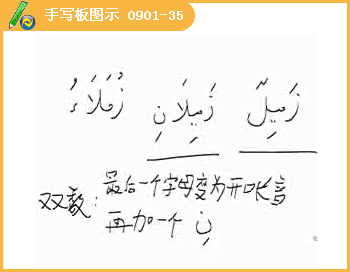 手写板图示 0901-35
زَمِيلٌ زَمِيلَانِ زُمَلَاءُ
双数：最后一个字母变为开口长音
再加一个 نِ